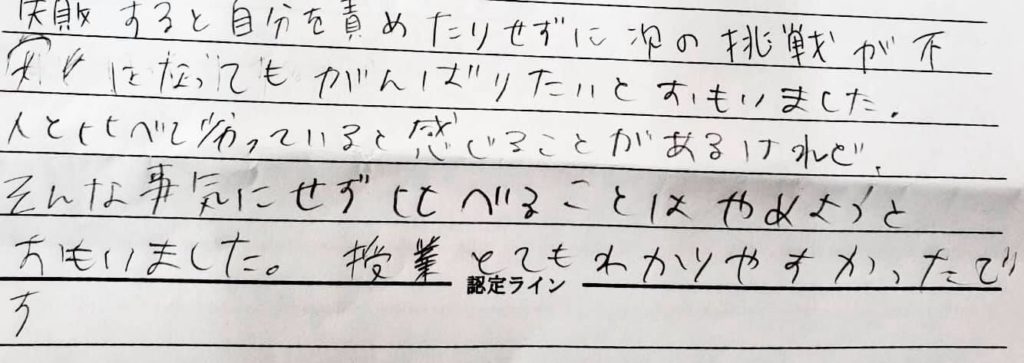 失敗すると自分を責めたりせずに次の挑戦が不
になってもがんばりたいとおもいました。
人と比べて劣っていると感じることがあるけれど、
そんな事気にせず比べることはやめようと
おもいました。授業とてもわかりやすかったで
す
認定ライン